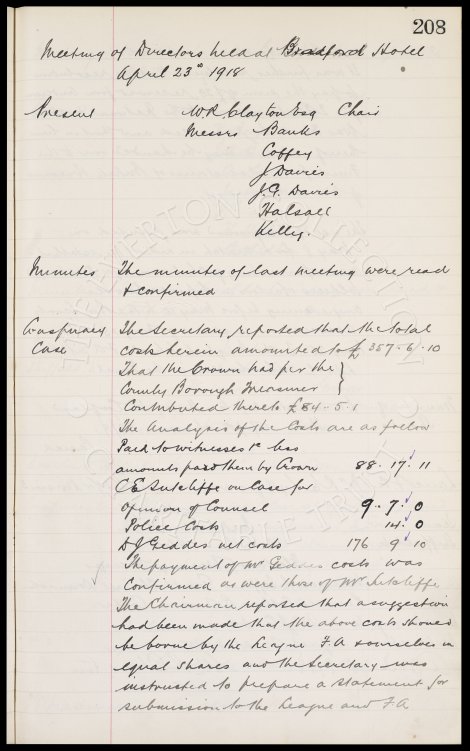 208
Meeting of Directors held at Bradford Hotel
April 23rd 1918
Present W R Clayton Esq Chair
Messrs Banks
Coffey
J Davies
J. G. Davies
Halsall
Kelly.
Minutes The minutes of last meeting were read
& confirmed
Conspiracy The Secretary reported that the total
Case costs herein amounted to £ 357-6-10
That the Crown had per the
County Borough Treasurer
Contributed thereto £84-5-1
The Analysis of the Costs are as follow
Paid to witnesses less
amounts paid them by Crown 88-17-11
C E Sutcliffe on Case for
opinion of Counsel 9-7-0
Police Costs 14-0
D J Geddes net costs 176 9 10
The payment of Mr Geddes costs was
Confirmed as were those of Mr Sutcliffe
The Chairman reported that a suggestion
had been made that the above costs should
be borne by the League F A & ourselves in
equal shares and the Secretary was
instructed to prepare a statement for
submission to the League and F A
THE EVERTON COLLECTION
CHARITABLE TRUST